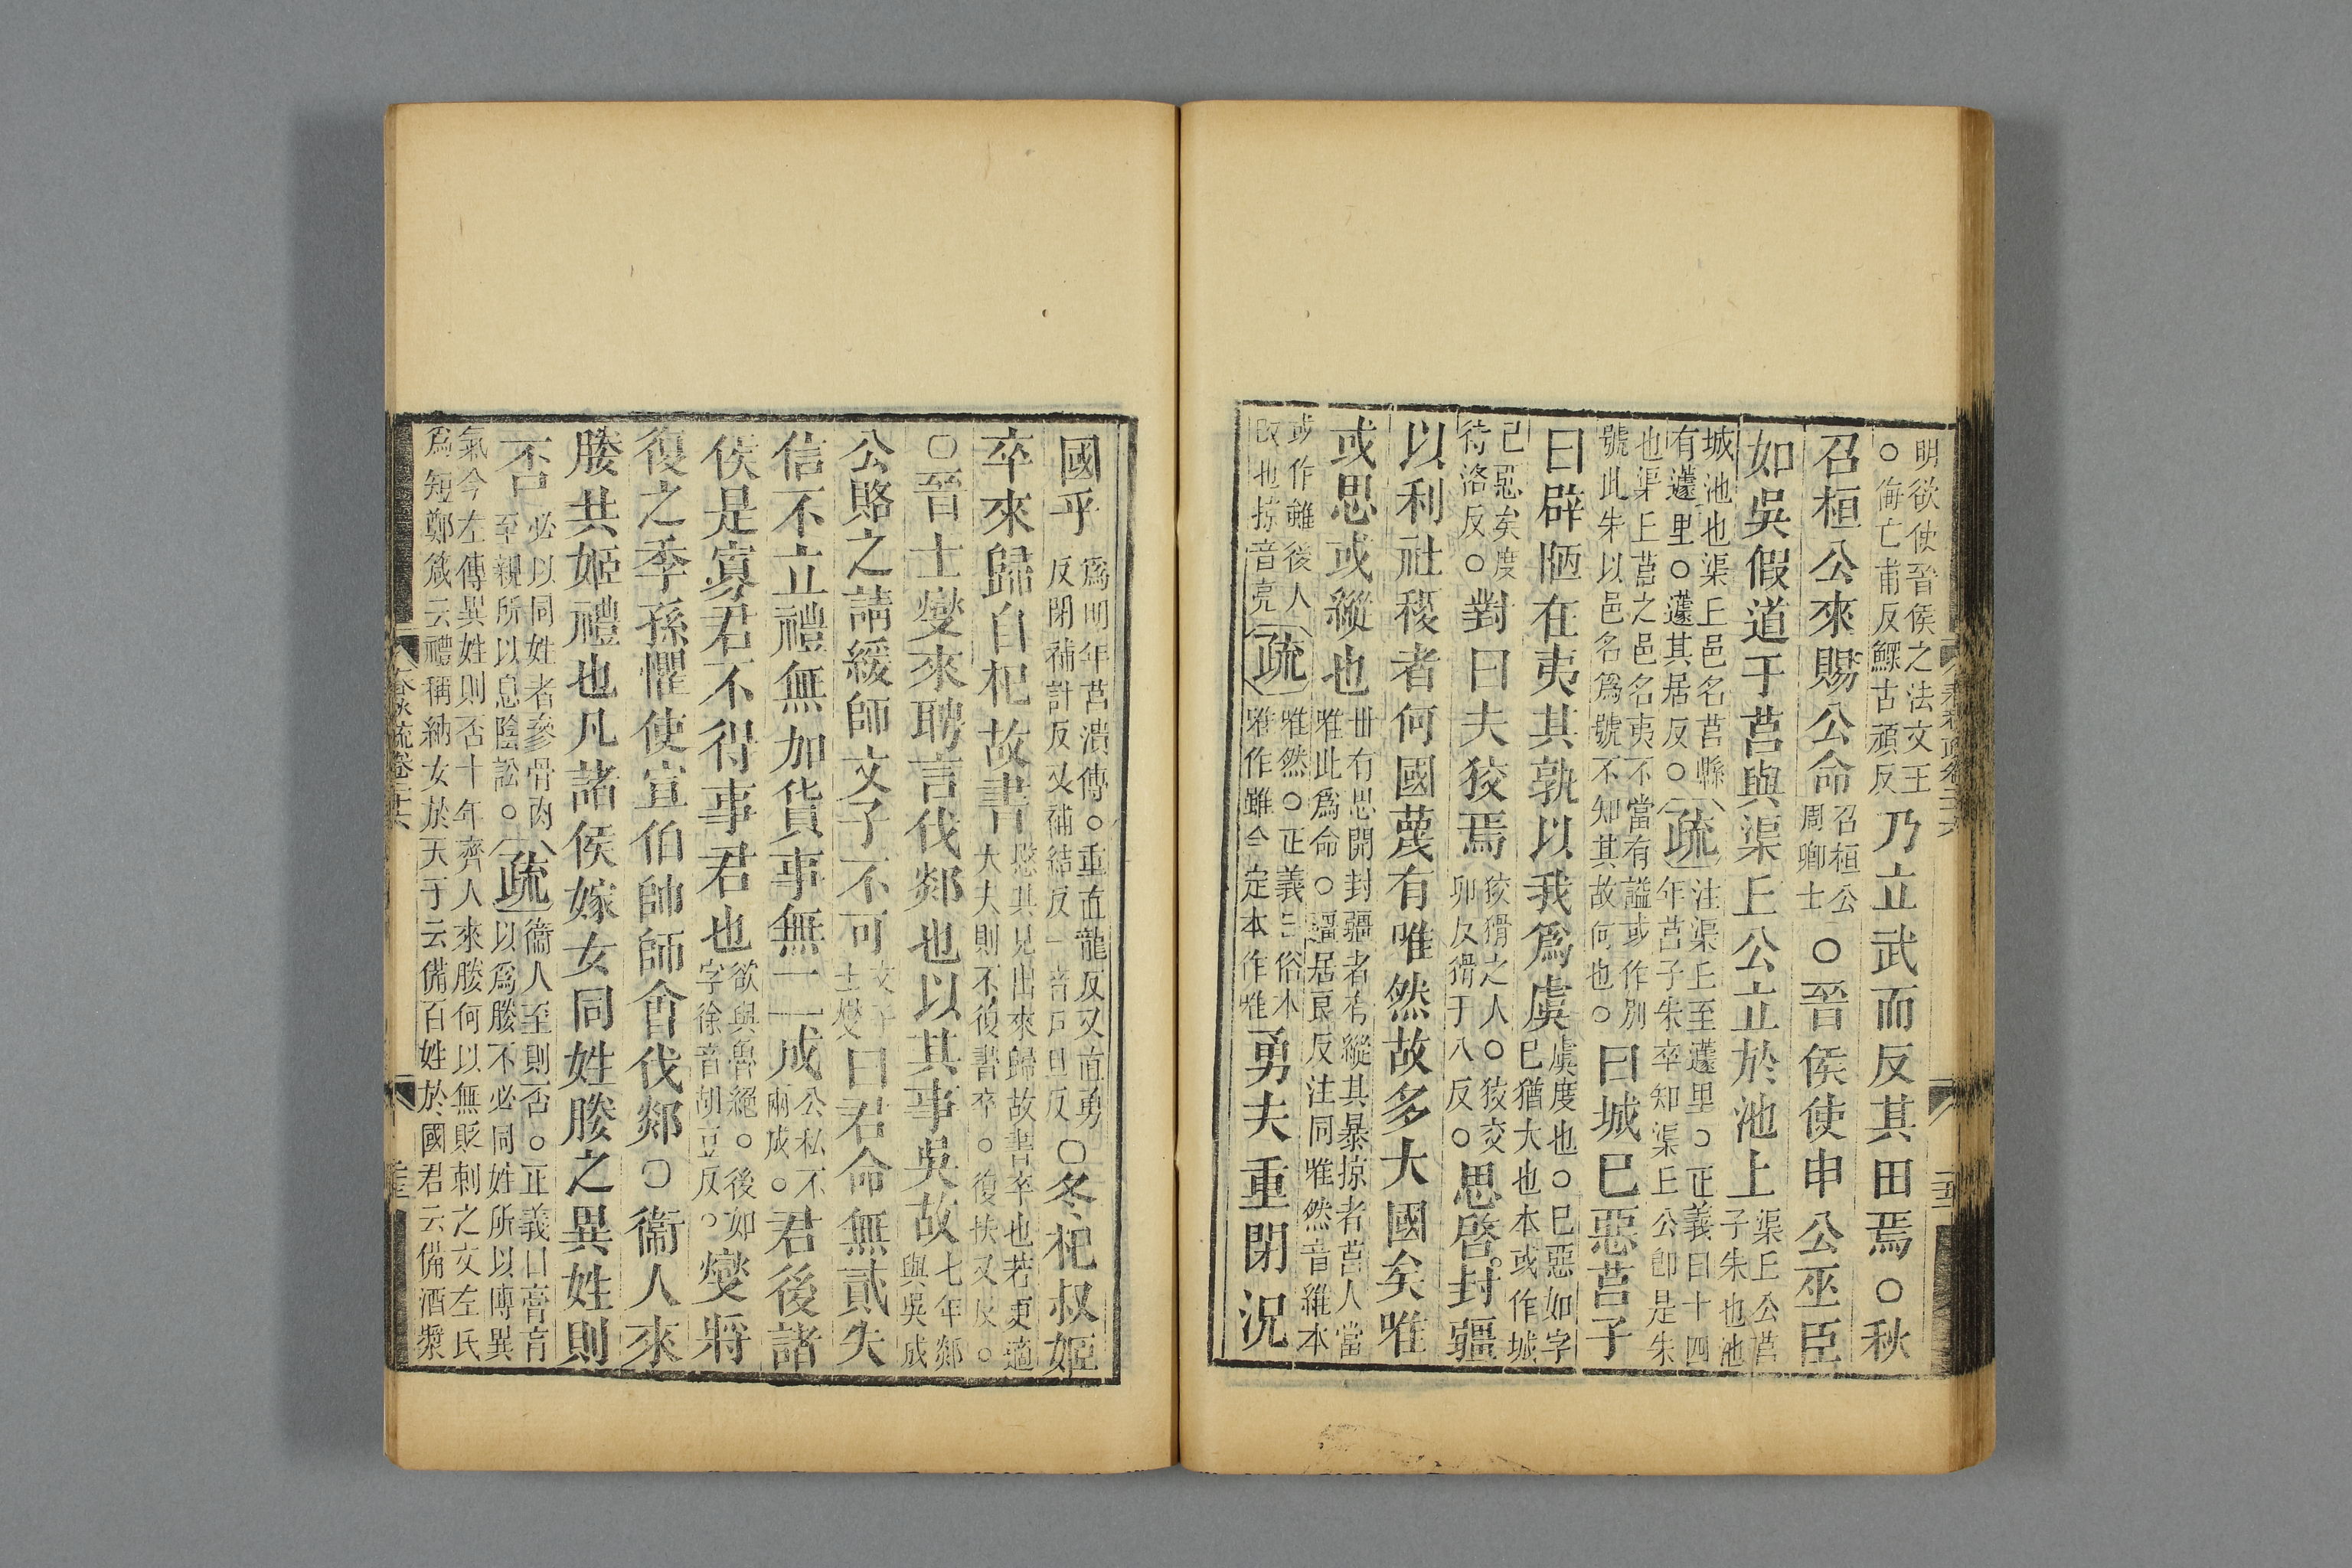 明欲使晉侯之法文王
○侮亡甫反鰥古頑反
乃立武而反其田焉○秋
召桓公來賜公命
召桓公
周卿士
○晉侯使申公巫臣
如吳假道于莒與渠丘公立於池上
渠丘公莒
子朱也池
城池也渠丘邑名莒縣
有蘧里○蘧其居反○
疏
注渠丘至蘧里○正義曰十四
年莒子朱卒知渠丘公卽是朱
也渠丘莒之邑名夷不當有謚或作別
號此朱以邑名爲號不知其故何也○
曰城已惡莒子
曰辟陋在夷其孰以我爲虞
虞度也○已惡如字
已猶大也本或作城
已惡矣度
待洛反○
對曰夫狡焉
狡猾之人○狡交
卯反猾于八反○
思啓封疆
以利社稷者何國蔑有唯然故多大國矣唯
或思或縱也
世有思開封疆者有縱其暴掠者莒人當
唯此爲命○疆居良反注同唯然音維本
或作雖後人
改也掠音亮
疏
唯然○正義曰俗本
唯作雖今定本作唯
勇夫重閉況
國乎
爲明年莒潰傳○重直龍反又直勇
反閉補計反又補結反一音戸旦反
○冬杞叔姬
卒來歸自杞故書
愍其見出來歸故書卒也若更適
大夫則不復書卒○復扶又反○
○晉士燮來聘言伐郯也以其事吳故
七年郯
與吳成
公賂之請緩師文子不可
文子
士燮
曰君命無貳失
信不立禮無加貨事無二成
公私不
兩成○
君後諸
侯是寡君不得事君也
欲與魯絕○後如
字徐音胡豆反○
燮將
復之季孫懼使宣伯帥師會伐郯○衞人來
媵共姬禮也凡諸侯嫁女同姓媵之異姓則
否
必以同姓者參骨肉
至親所以息陰訟○
疏
衞人至則否○正義曰膏肓
以爲媵不必同姓所以博異
氣今左傳異姓則否十年齊人來媵何以無貶刺之文左氏
爲短鄭箴云禮稱納女於天子云備百姓於國君云備酒漿
春秋疏卷二十六